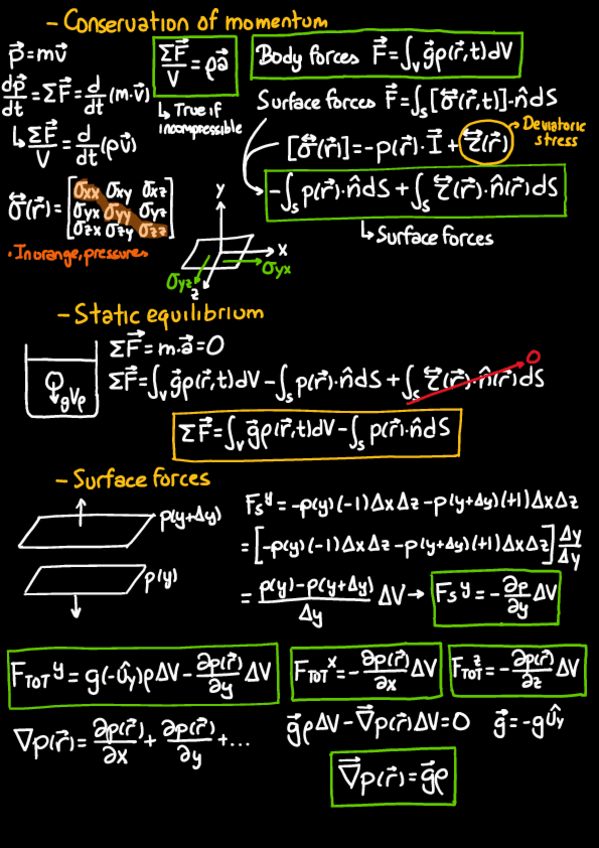 - Conservation of momentum
p⃗ = mv⃗
ΣF⃗/V = ρa⃗
↳ True if incompressible
Body forces F⃗ = ∫ᵥ g⃗ρ(r⃗,t)dV
dp⃗/dt = ΣF⃗ = d/dt (m·v⃗)
Surface forces F⃗ = ∫ₛ [σ⃡(r⃗,t)]·n̂dS
↳ ΣF⃗/V = d/dt (ρv⃗)
[σ⃡(r⃗)] = -p(r⃗)·I⃡ + τ⃡(r⃗)
→ Deviatoric stress
-∫ₛ p(r⃗)·n̂dS + ∫ₛ τ⃡(r⃗)·n̂(r⃗)dS
↳ Surface forces
σ⃡(r⃗) = [σxx σxy σxz
σyx σyy σyz
σzx σzy σzz]
· In orange, pressures
y
x
z
σyz
σyx
- Static equilibrium
ΣF⃗ = m·a⃗ = 0
gVρ
ΣF⃗ = ∫ᵥ g⃗ρ(r⃗,t)dV - ∫ₛ p(r⃗)·n̂dS + ∫ₛ τ⃡(r⃗)·n̂(r⃗)dS → 0
ΣF⃗ = ∫ᵥ g⃗ρ(r⃗,t)dV - ∫ₛ p(r⃗)·n̂dS
- Surface forces
p(y+Δy)
p(y)
Fₛʸ = -p(y)(-1)ΔxΔz - p(y+Δy)(+1)ΔxΔz
= [-p(y)(-1)ΔxΔz - p(y+Δy)(+1)ΔxΔz] Δy/Δy
= (p(y) - p(y+Δy))/Δy ΔV → Fₛʸ = -∂p/∂y ΔV
F_TOTʸ = g(-ûy)ρΔV - ∂p(r⃗)/∂y ΔV
F_TOTˣ = -∂p(r⃗)/∂x ΔV
F_TOTᶻ = -∂p(r⃗)/∂z ΔV
∇p(r⃗) = ∂p(r⃗)/∂x + ∂p(r⃗)/∂y + ...
g⃗ρΔV - ∇⃗p(r⃗)ΔV = 0
g⃗ = -gûy
∇⃗p(r⃗) = g⃗ρ